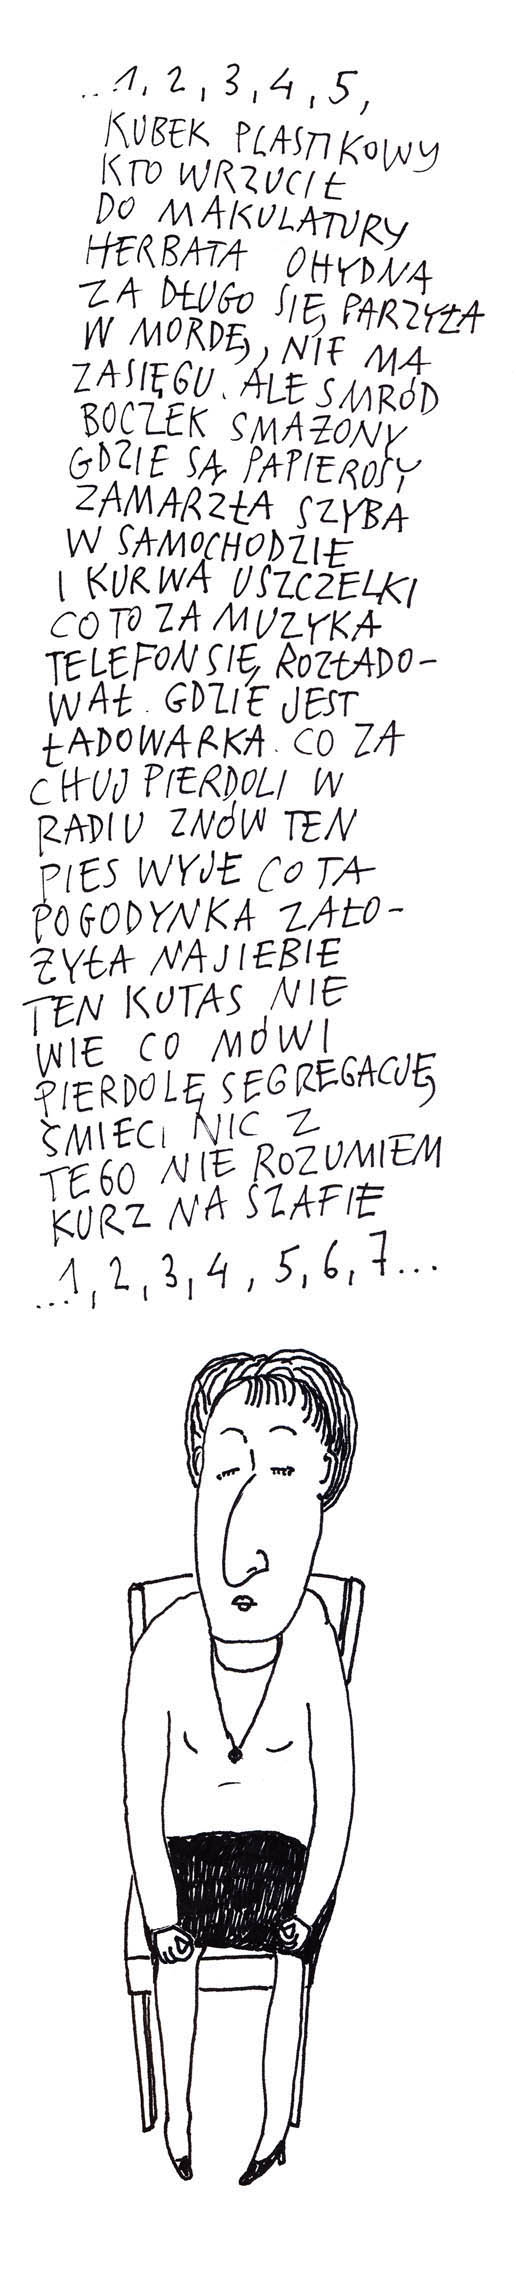 ...1, 2, 3, 4, 5,
KUBEK PLASTIKOWY
KTO WRZUCIŁ
DO MAKULATURY
HERBATA OHYDNA
ZA DŁUGO SIĘ PARZYŁA
W MORDĘ, NIE MA
ZASIĘGU. ALE SMRÓD
BOCZEK SMAŻONY
GDZIE SĄ PAPIEROSY
ZAMARZŁA SZYBA
W SAMOCHODZIE
I KURWA USZCZELKI
CO TO ZA MUZYKA
TELEFON SIĘ ROZŁADO-
WAŁ. GDZIE JEST
ŁADOWARKA. CO ZA
CHUJ PIERDOLI W
RADIU ZNÓW TEN
PIES WYJE CO TA
POGODYNKA ZAŁO-
ŻYŁA NA SIEBIE
TEN KUTAS NIE
WIE CO MÓWI
PIERDOLĘ SEGREGACJĘ
ŚMIECI NIC Z
TEGO NIE ROZUMIEM
KURZ NA SZAFIE
...1, 2, 3, 4, 5, 6, 7...